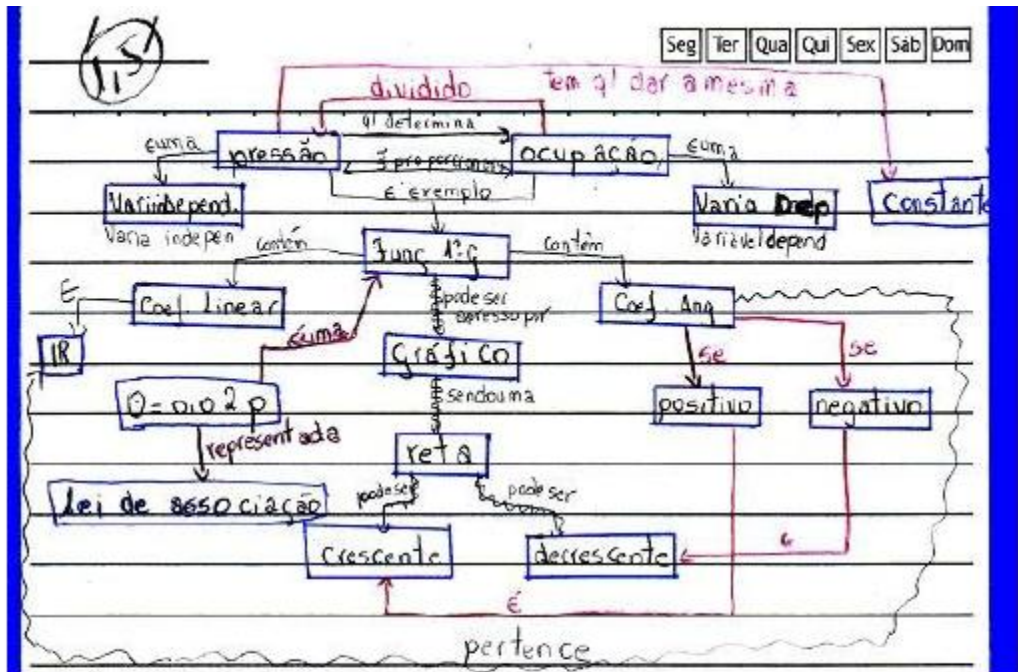 1,5
Seg Ter Qua Qui Sex Sáb Dom
dividido
Tem q' dar a mesma
q' determina
é uma
pressão
ocupação
é uma
é exemplo
Varia Dep
Constante
Varia indepen
Variável depend
contém
Func 1º G
contém
É
Coef. Linear
pode ser
expresso por
Coef. Ang
é uma
IR
Gráfico
se
se
O = 0,02 p
sendo uma
positivo
negativo
representada
reta
Lei de associação
pode ser
pode ser
crescente
decrescente
é
É
pertence